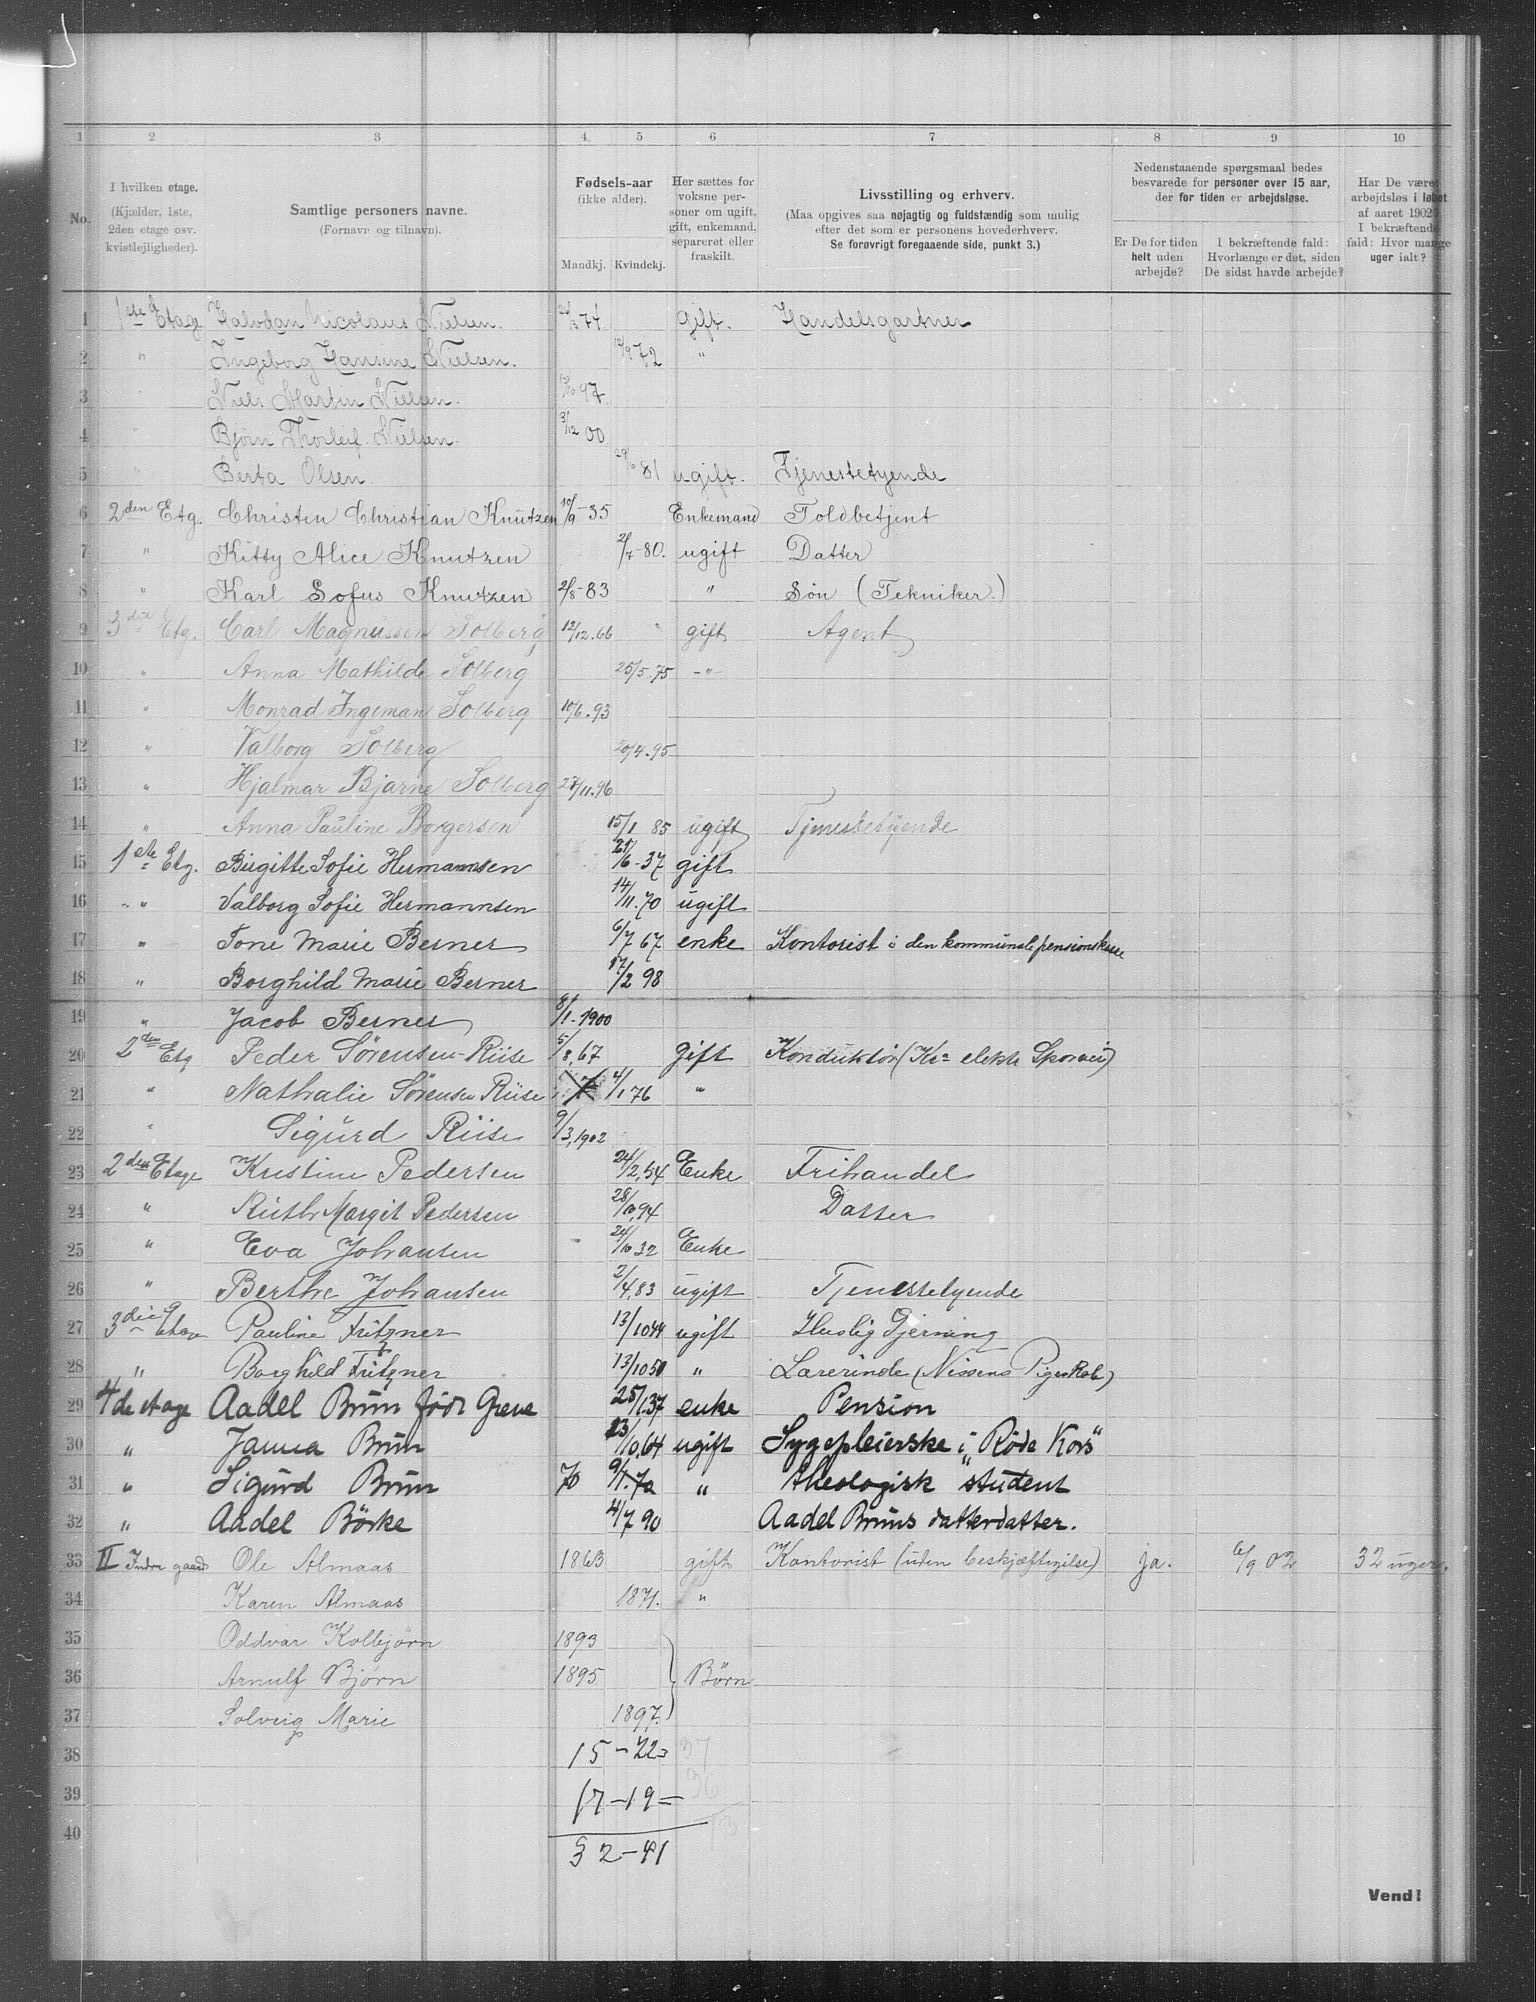 1 2 3 4 5 6 7 8 9 10
No. I hvilken etage. (Kjælder, 1ste, 2den etage osv. kvistlejligheder). Samtlige personers navne. (Fornavn og tilnavn). Fødsels-aar (ikke alder). Mandkj. Kvindekj. Her sættes for voksne personer om ugift, gift, enkemand, separeret eller fraskilt. Livsstilling og erhverv. (Maa opgives saa nøjagtig og fuldstændig som mulig efter det som er personens hovederhverv. Se forøvrigt foregaaende side, punkt 3.) Nedenstaaende spørgsmaal bedes besvarede for personer over 15 aar, der for tiden er arbejdsløse. Er De for tiden helt uden arbejde? I bekræftende fald: Hvorlænge er det, siden De sidst havde arbejde? Har De været arbejdsløs i løbet af aaret 1902? I bekræftende fald: Hvor mange uger ialt?
1 1ste Etage Halvdan Nicolaus Nielsen. 74 gift. Handelsgartner
2 " Ingeborg Hansine Nielsen. 12/9 72 "
3 " Niels Martin Nielsen. 97
4 " Bjørn Thorleif Nielsen. 3/12 00
5 " Berta Olsen. 81 ugift. Tjenestetyende
6 2den Etg. Christen Christian Knutzen 10/9-35 Enkemand Toldbetjent
7 " Kitty Alice Knutzen 2/7-80. ugift Datter
8 " Karl Sofus Knutzen 2/8-83 " Søn (Tekniker.)
9 3die Etg. Carl Magnussen Solberg 12/12.66 " gift Agent
10 " Anna Mathilde Solberg 25/5.75 -"-
11 " Monrad Ingeman Solberg 10/6.93
12 " Valborg Solberg 20/4.95
13 " Hjalmar Bjarne Solberg 27/11.96
14 " Anna Pauline Borgersen 15/1 85 ugift Tjenestetyende
15 1ste Etg. Birgitte Sofie Hermannsen 21/6-37 gift
16 " Valborg Sofie Hermannsen 14/11.70 ugift
17 " Tone Marie Berner 6/7 67 enke Kontorist i den kommunale pensionskasse
18 " Borghild Marie Berner 17/2 98
19 " Jacob Berner 8/1-1900
20 2den Etg Peder Sörensen-Riise 5/8,67 Gift Konduktör (Kra elektr Sporvei)
21 " Nathalie Sörensen Riise 4/1 76 "
22 " Sigurd Riise 9/3,1902
23 2den Etage Kristine Pedersen 24/2,54 Enke Frihandel
24 " Ruth Margit Pedersen 28/10,94 Datter
25 " Eva Johansen 24/10 32 Enke
26 " Berthe Johansen 2/4,83 ugift Tjenestetyende
27 3die Etage Pauline Fritzner 13/10 44 ugift Huslig Gjerning
28 " Borghild Fritzner 13/10 50 " Lærerinde (Nissens Pigeskole)
29 4de etage Aadel Brun født Greve 25/1.37 enke Pension
30 " Janna Brun 23/10.64 ugift Sygepleierske i "Røde Kors"
31 " Sigurd Brun 70 9/1.70 " theologisk student
32 " Aadel Börke 4/7 90 Aadel Bruns datterdatter.
33 II Indre gaard Ole Almaas 1863 gift Kontorist (uden beskjæftigelse) ja. 6/9 02 32 uger.
34 Karen Almaas 1871. "
35 Oddvar Kolbjørn 1893
36 Arnulf Bjørn 1895 Børn
37 Solveig Marie 1897.
38 15-22= 37
39 17-19= 36
40 32-41
Vend!